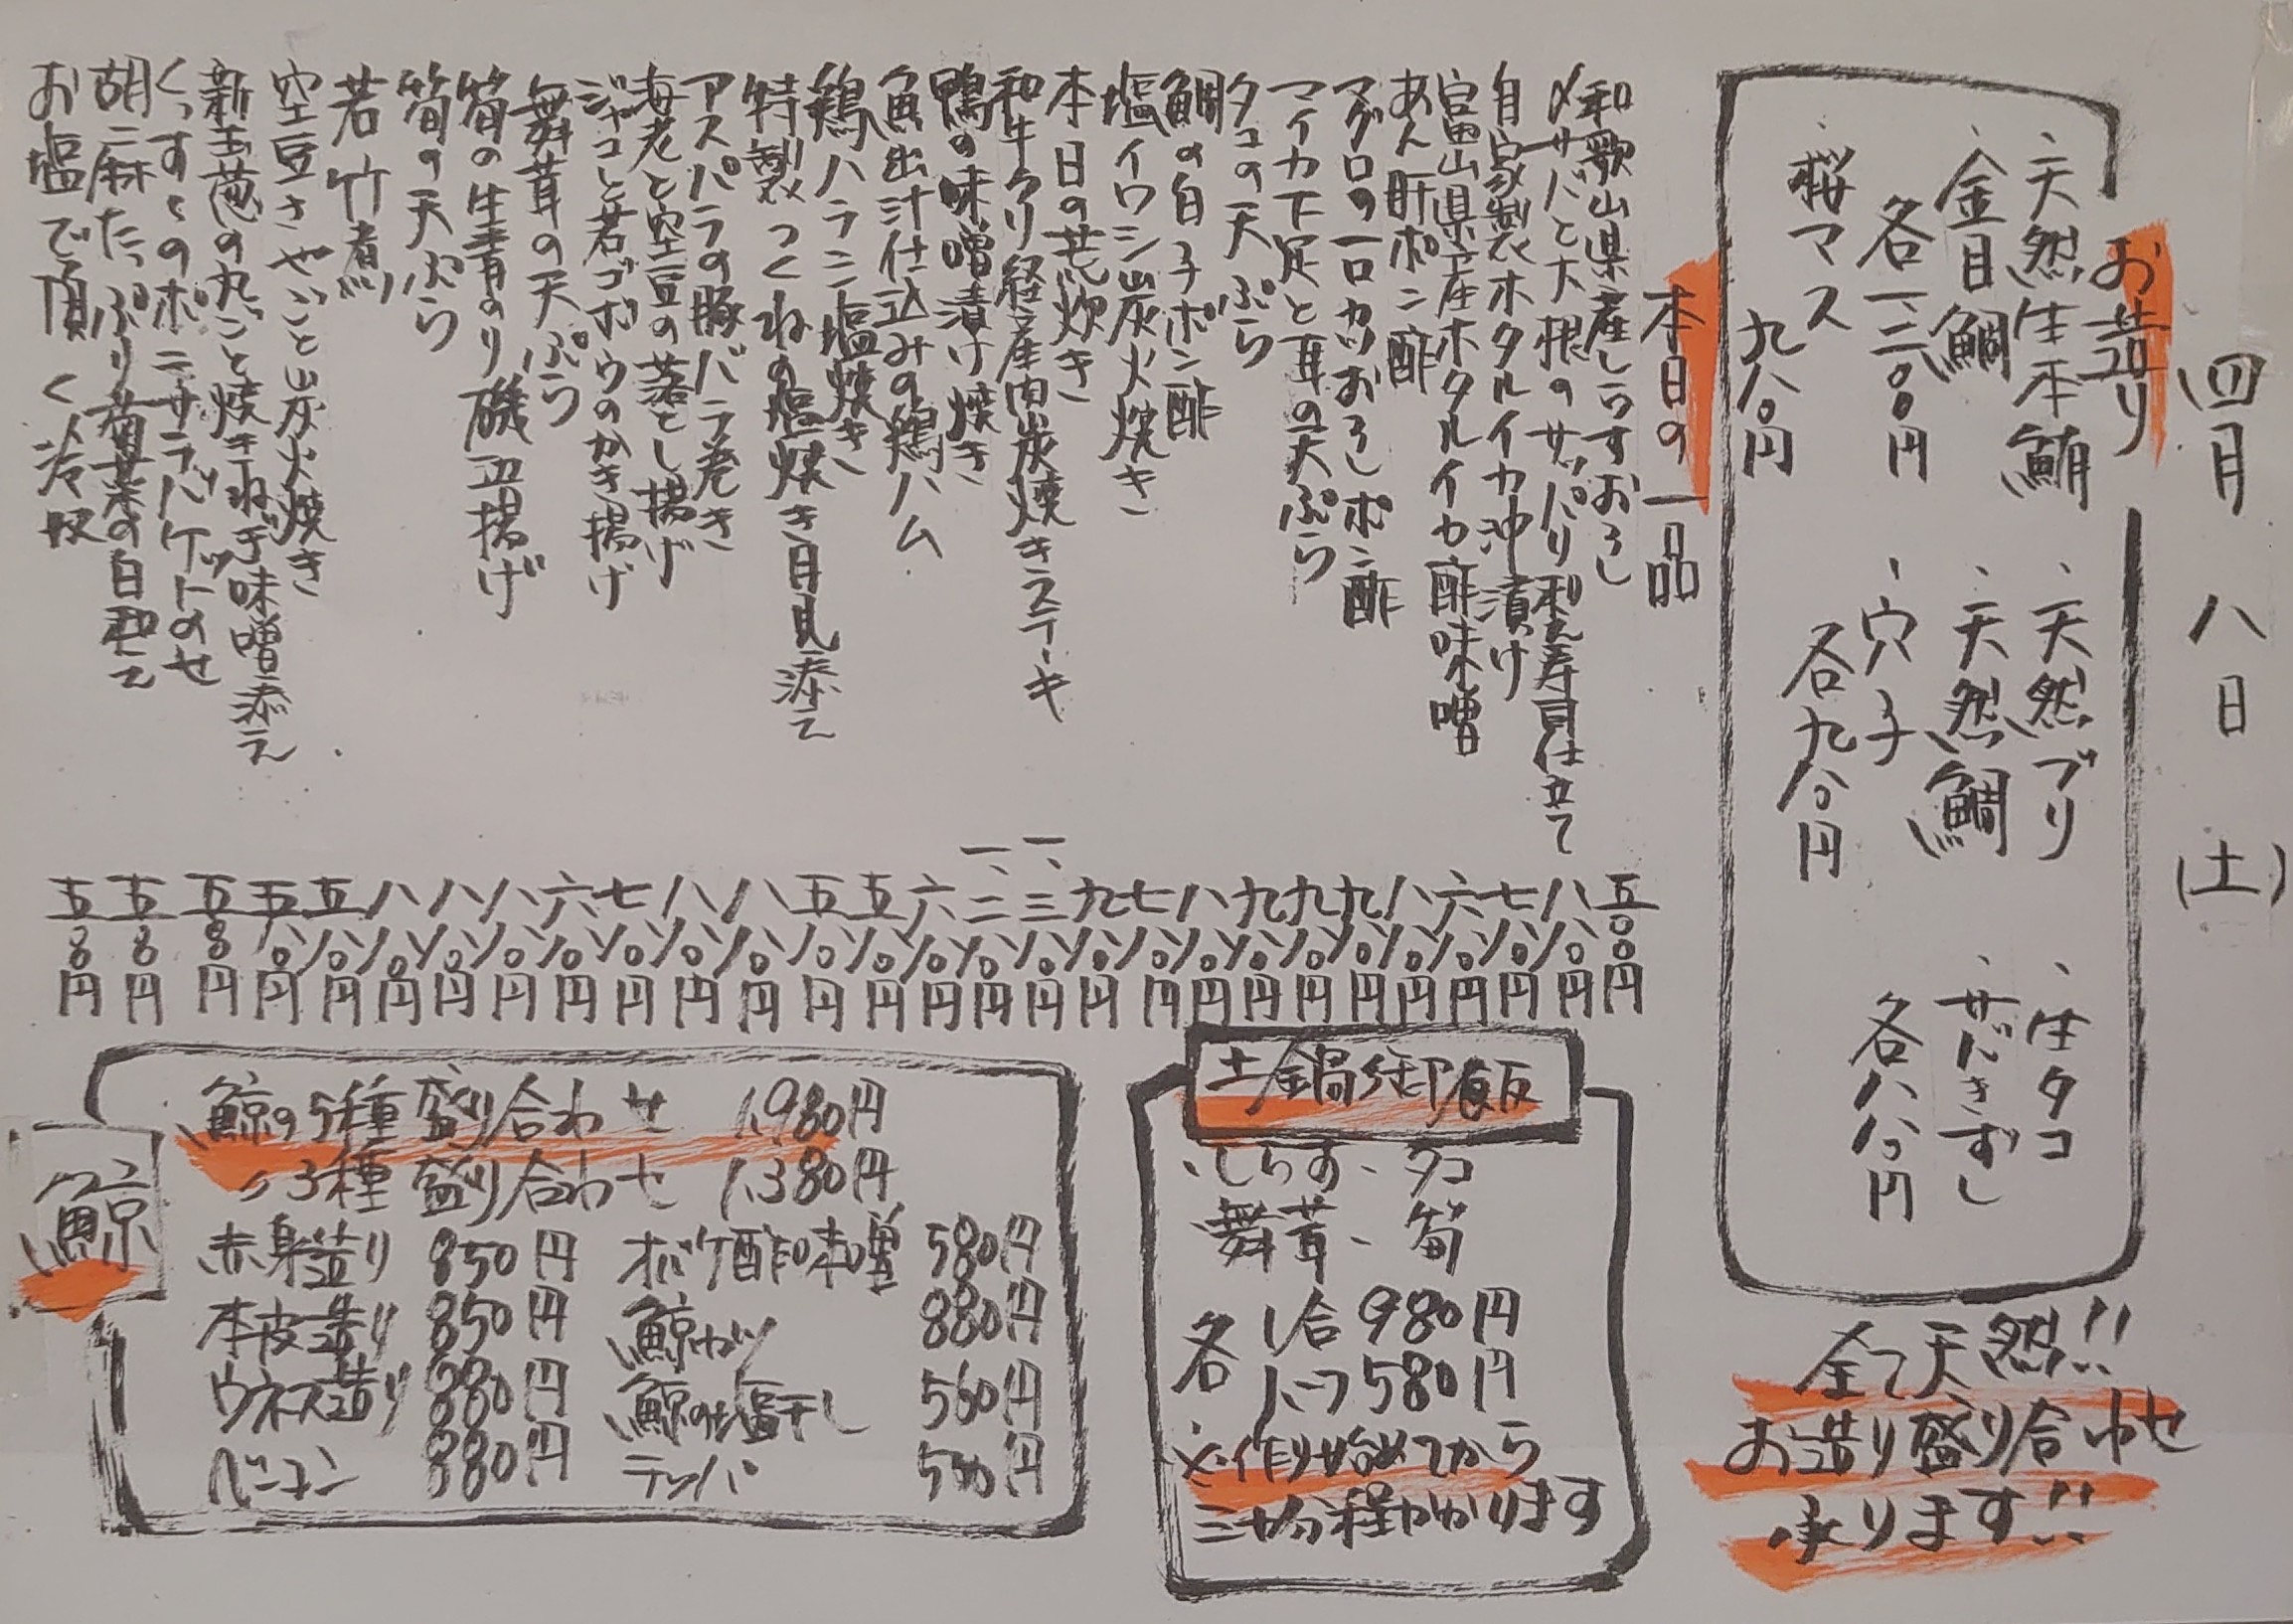 四月 八日 (土)
お造り
、天然生本鮪 、天然ブリ 、生タコ
、金目鯛 、天然鯛 、サバきずし
各一、二八〇円 、穴子 各八八〇円
、桜マス 各九八〇円
九八〇円
全て天然!!
お造り盛り合わせ
承ります!!
本日の一品
和歌山県産しらすおろし 五〇〇円
〆サバと大根のサッパリ和え寿司仕立て 八八〇円
自家製ホタルイカ沖漬け 七八〇円
富山県産ホタルイカ酢味噌 六八〇円
あん肝ポン酢 八八〇円
マグロの一口カツおろしポン酢 九八〇円
マイカ下足と耳の天ぷら 九八〇円
タコの天ぷら 九八〇円
鯛の白子ポン酢 八八〇円
塩イワシ炭火焼き 七八〇円
本日の荒炊き 九八〇円
和牛クリ経産肉炭焼きステーキ 一、三八〇円
鴨の味噌漬け焼き 一、二八〇円
魚出汁仕込みの鶏ハム 六八〇円
鶏ハラミ塩焼き 五八〇円
特製つくねの塩焼き月見添え 五八〇円
アスパラの豚バラ巻き 八八〇円
海老と空豆の落とし揚げ 八八〇円
ジャコと若ゴボウのかき揚げ 七八〇円
舞茸の天ぷら 六八〇円
筍の生青のり磯辺揚げ 八八〇円
筍の天ぷら 八八〇円
若竹煮 八八〇円
空豆さやごと炭火焼き 五八〇円
新玉葱の丸ごと焼きねぎ味噌添え 五八〇円
くっすとのポテサラバケットのせ 五八〇円
胡麻たっぷり菊菜の白和え 五八〇円
お塩で頂く冷奴 五八〇円
土鍋御飯
、しらす、タコ
、舞茸、筍
各 1合 980円
各 ハーフ 580円
※作り始めてから
三十分程かかります
鯨
鯨の5種盛り合わせ 1,980円
〃3種盛り合わせ 1,380円
赤身造り 850円 オバケ酢味噌 580円
本皮造り 850円 鯨カツ 880円
ウネス造り 880円 鯨の塩干し 560円
ベーコン 880円 テッパ 530円